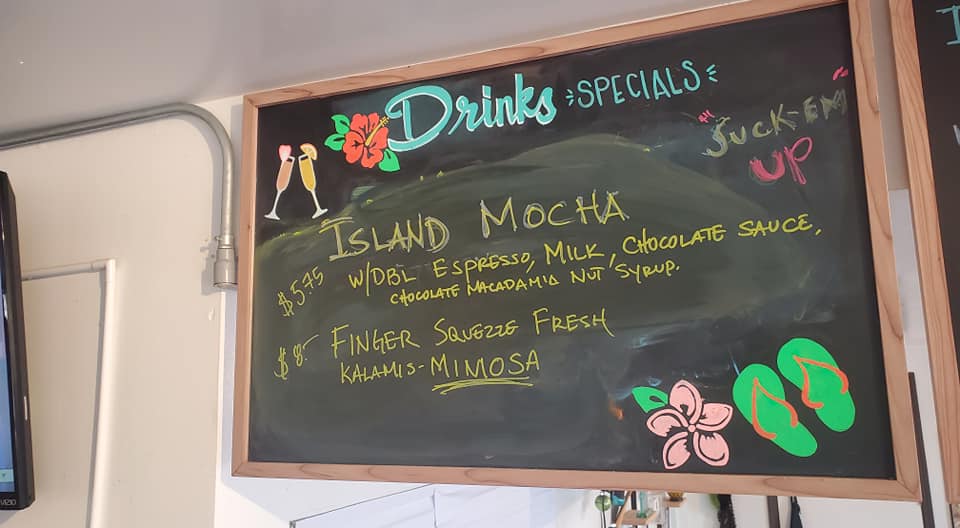 Drinks SPECIALS
"SUCK-EM"
UP
ISLAND MOCHA
$5.75 W/DBL ESPRESSO, MILK, CHOCOLATE SAUCE,
CHOCOLATE MACADAMIA NUT SYRUP.
$8.- FINGER SQUEZZE FRESH
KALAMIS-MIMOSA
VIZIO